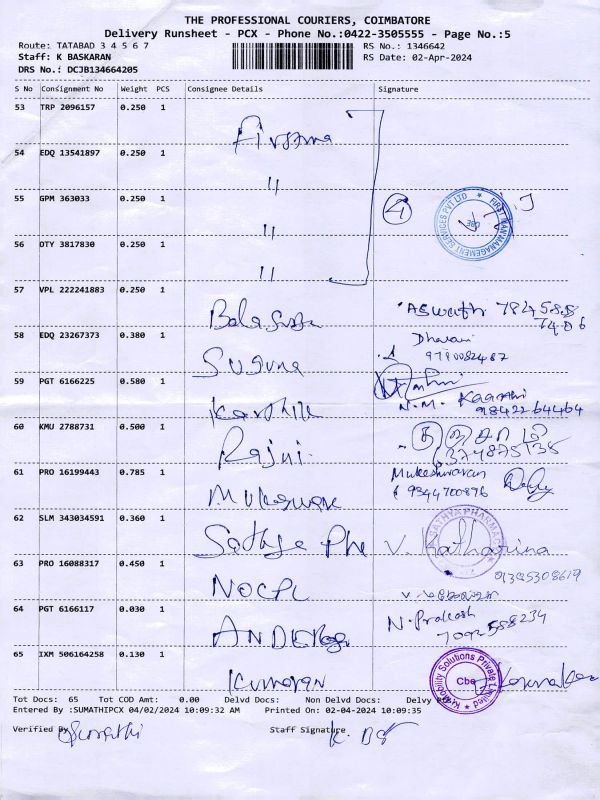 THE PROFESSIONAL COURIERS, COIMBATORE
Delivery Runsheet - PCX - Phone No.:0422-3505555 - Page No.:5
Route: TATABAD 3 4 5 6 7 RS No.: 1346642
Staff: K BASKARAN RS Date: 02-Apr-2024
DRS No.: DCJB134664205
S No Consignment No Weight PCS Consignee Details Signature
53 TRP 2096157 0.250 1
4
54 EDQ 13541897 0.250 1
"
55 GPM 363033 0.250 1
"
FIRST MAN MANAGEMENT SERVICES PVT LTD CBE
56 DTY 3817830 0.250 1
"
57 VPL 222241883 0.250 1
Aswath 784588
7406
58 EDQ 23267373 0.380 1
Suguna Dharani
59 PGT 6166225 0.580 1
Karthik N.M. Kaarthi
9842264464
60 KMU 2788731 0.500 1
Rajni.
61 PRO 16199443 0.785 1
Mukeshwaran
9344700876
62 SLM 343034591 0.360 1
SATHYA PHARMACY
Sathya Pha V. Katharina
63 PRO 16088317 0.450 1
NOCPL
64 PGT 6166117 0.030 1
N. Prakash
7092588234
65 IXM 506164258 0.130 1
Kumaran
Mobility Solutions Private Limited Cbe
Tot Docs: 65 Tot COD Amt: 0.00 Delvd Docs: Non Delvd Docs: Delvy
Entered By :SUMATHIPCX 04/02/2024 10:09:32 AM Printed On: 02-04-2024 10:09:35
Verified By Sumathi Staff Signature